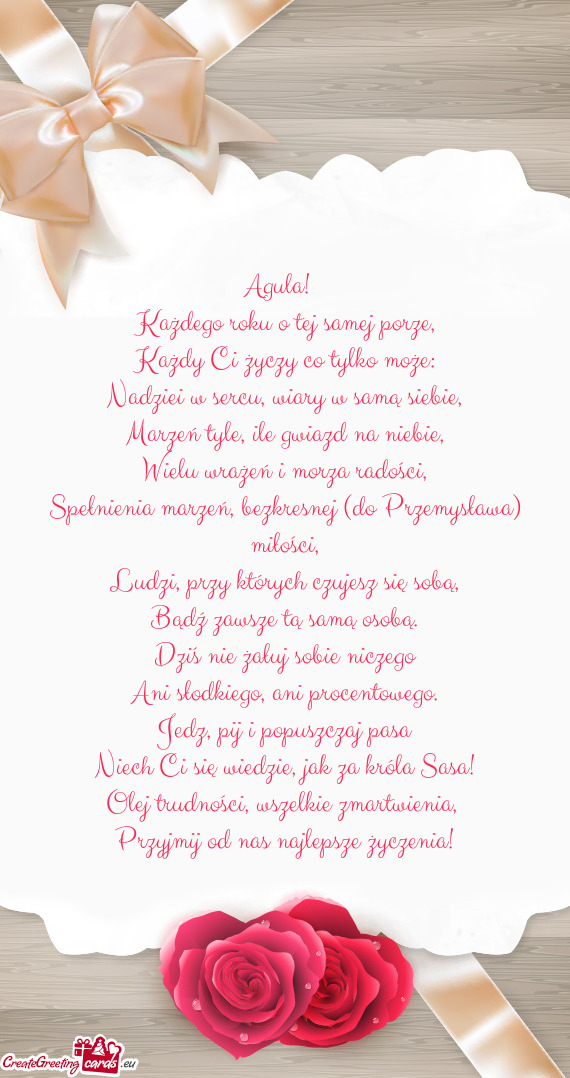 Agula!
Każdego roku o tej samej porze,
Każdy Ci życzy co tylko może:
Nadziei w sercu, wiary w samą siebie,
Marzeń tyle, ile gwiazd na niebie,
Wielu wrażeń i morza radości,
Spełnienia marzeń, bezkresnej (do Przemysława)
miłości,
Ludzi, przy których czujesz się sobą,
Bądź zawsze tą samą osobą.
Dziś nie żałuj sobie niczego
Ani słodkiego, ani procentowego.
Jedz, pij i popuszczaj pasa
Niech Ci się wiedzie, jak za króla Sasa!
Olej trudności, wszelkie zmartwienia,
Przyjmij od nas najlepsze życzenia!
CreateGreeting cards .eu